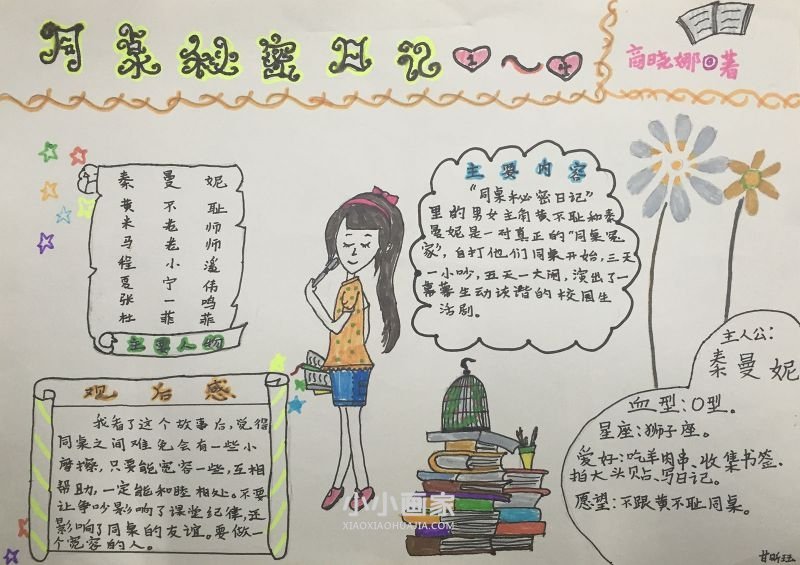 同桌秘密日记 1~4
商晓娜◎著
秦曼妮
黄不耻
米老师
马老师
程小遥
夏宁伟
张一鸣
杜菲菲
主要人物
主要内容
"同桌秘密日记"
里的男女主角黄不耻和秦
曼妮是一对真正的"同桌冤
家",自打他们同桌开始,三天
一小吵,五天一大闹,演出了一
幕幕生动诙谐的校园生
活剧。
主人公:
秦曼妮
血型:O型。
星座:狮子座。
爱好:吃羊肉串、收集书签、
拍大头贴、写日记。
愿望:不跟黄不耻同桌。
观后感
我看了这个故事后,觉得
同桌之间难免会有一些小
摩擦,只要能宽容一些,互相
帮助,一定能和睦相处。不要
让争吵影响了课堂纪律,还
影响了同桌的友谊。要做一
个宽容的人。
小小画家
XIAOXIAOHUAJIA.COM